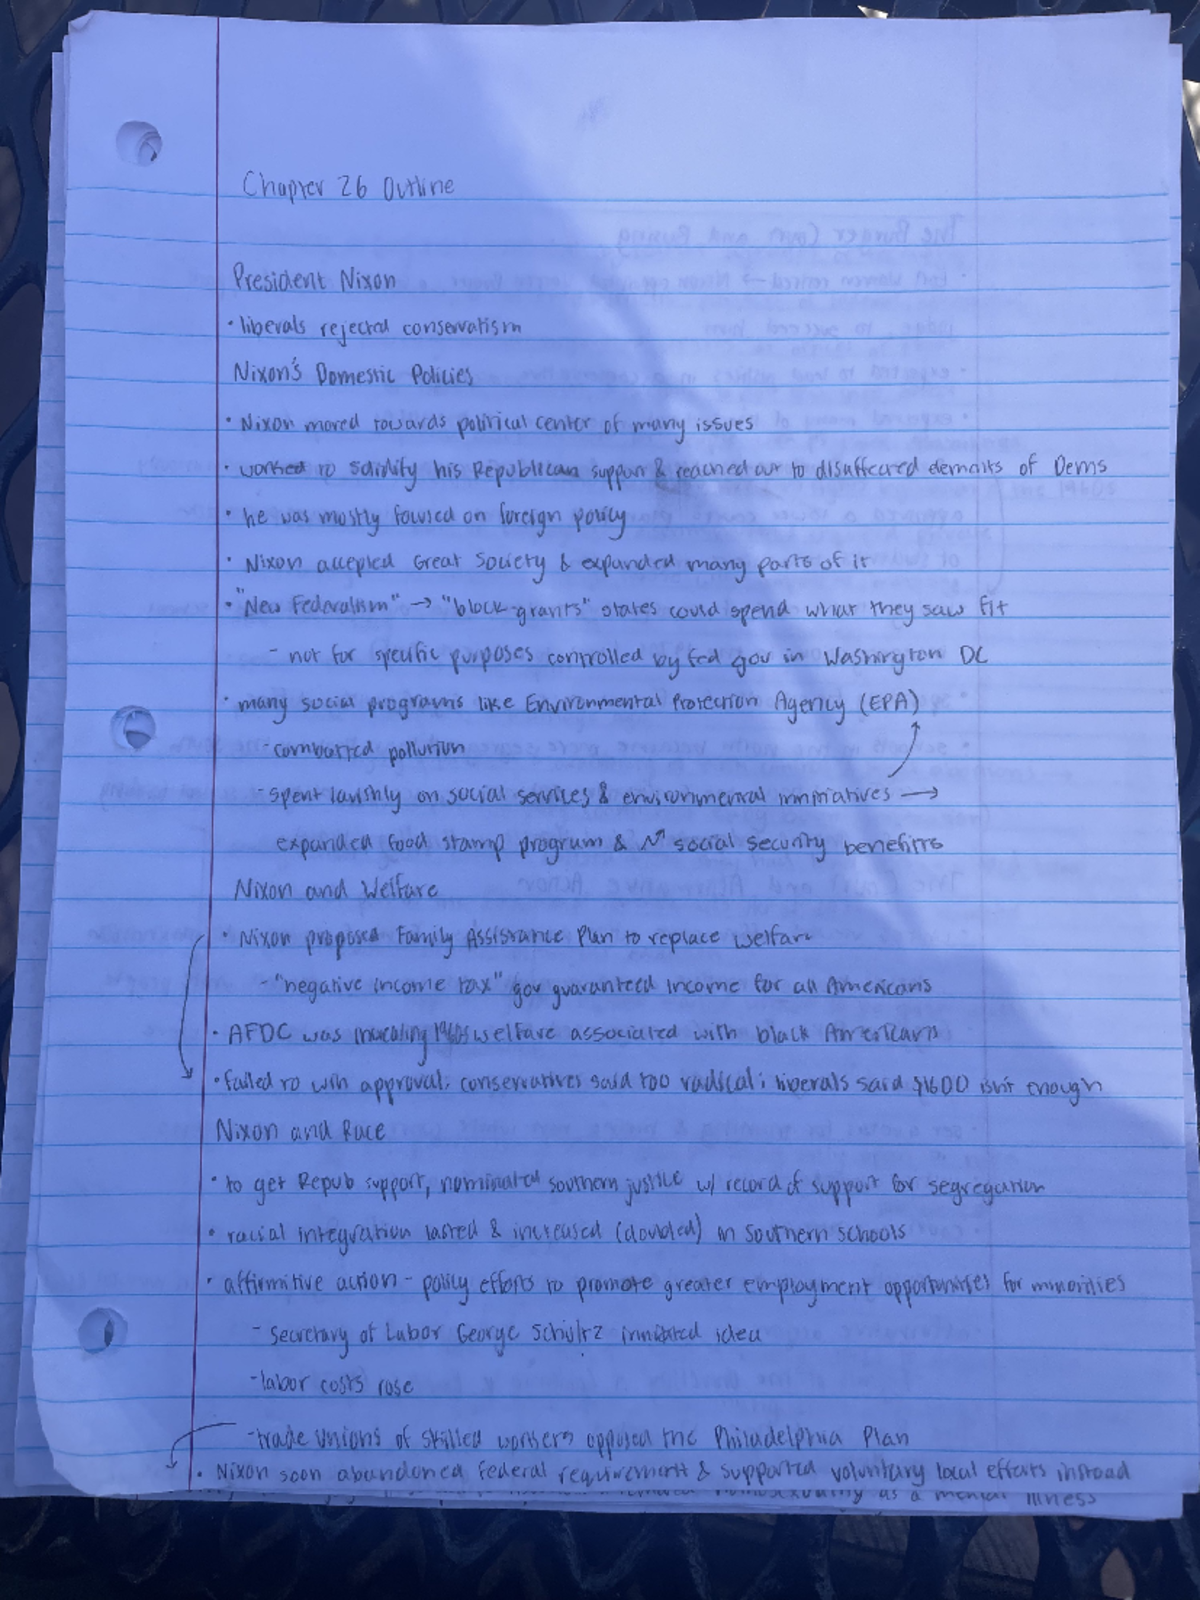 Chapter 26 Outline
President Nixon
• liberals rejected conservatism
Nixon's Domestic Policies
• Nixon moved towards political center of many issues
• worked to solidify his Republican support & reached out to disaffected elements of Dems
• he was mostly focused on foreign policy
• Nixon accepted Great Society & expanded many parts of it
• "New Federalism" → "block-grants" states could spend what they saw fit
- not for specific purposes controlled by fed gov in Washington DC
• many social programs like Environmental Protection Agency (EPA)
- combatted pollution
- spent lavishly on social services & environmental initiatives →
expanded food stamp program & ↗ social security benefits
Nixon and Welfare
• Nixon proposed Family Assistance Plan to replace welfare
- "negative income tax" gov guaranteed income for all Americans
• AFDC was increasing 1960s welfare associated with black Americans
• failed to win approval; conservatives said too radical; liberals said $1600 isn't enough
Nixon and Race
• to get Repub support, nominated southern justice w/ record of support for segregation
• racial integration lasted & increased (doubled) in Southern schools
• affirmitive action - policy efforts to promote greater employment opportunities for minorities
- Secretary of Labor George Schultz initiated idea
- labor costs rose
- trade unions of skilled workers opposed the Philadelphia Plan
• Nixon soon abandoned federal requirement & supported voluntary local efforts instead
homosexuality as a mental illness